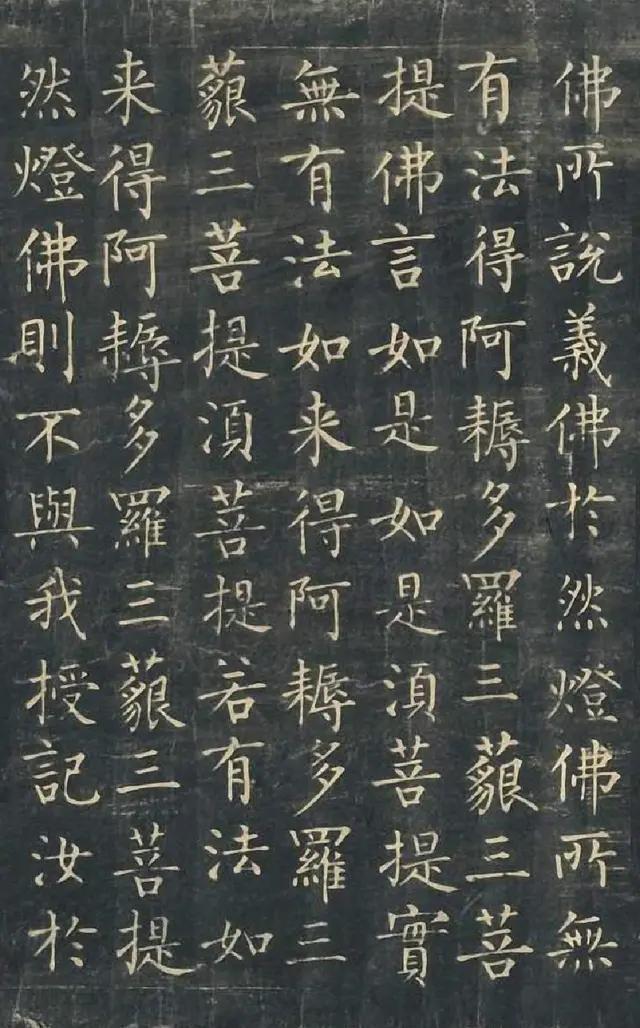 佛所說義佛於然燈佛所無
有法得阿耨多羅三藐三菩
提佛言如是如是湏菩提實
無有法如来得阿耨多羅三
藐三菩提湏菩提若有法如
来得阿耨多羅三藐三菩提
然燈佛則不與我授記汝於